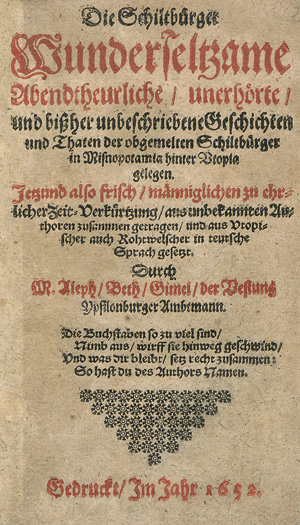 Die Schiltbürger
Wunderseltzame
Abendtheurliche / unerhörte /
und bißher unbeschriebene Geschichten
und Thaten der obgemelten Schiltbürger
in Misnopotamia hinter Vtopia
gelegen.
Jetzund also frisch / männiglichen zu ehr-
licher Zeit-Verkürtzung / aus unbekannten Au-
thoren zusammen getragen / und aus Vtopi-
scher auch Rohtwelscher in teutsche
Sprach gesetzt.
Durch
M. Aleph / Beth / Gimel / der Vestung
Ypsilonburger Ambtmann.
Die Buchstaben so zu viel sind /
Nimb aus / wirff sie hinweg geschwind /
Und was dir bleibt / setz recht zusammen:
So hast du des Authors Namen.
Gedruckt / Im Jahr 1652.